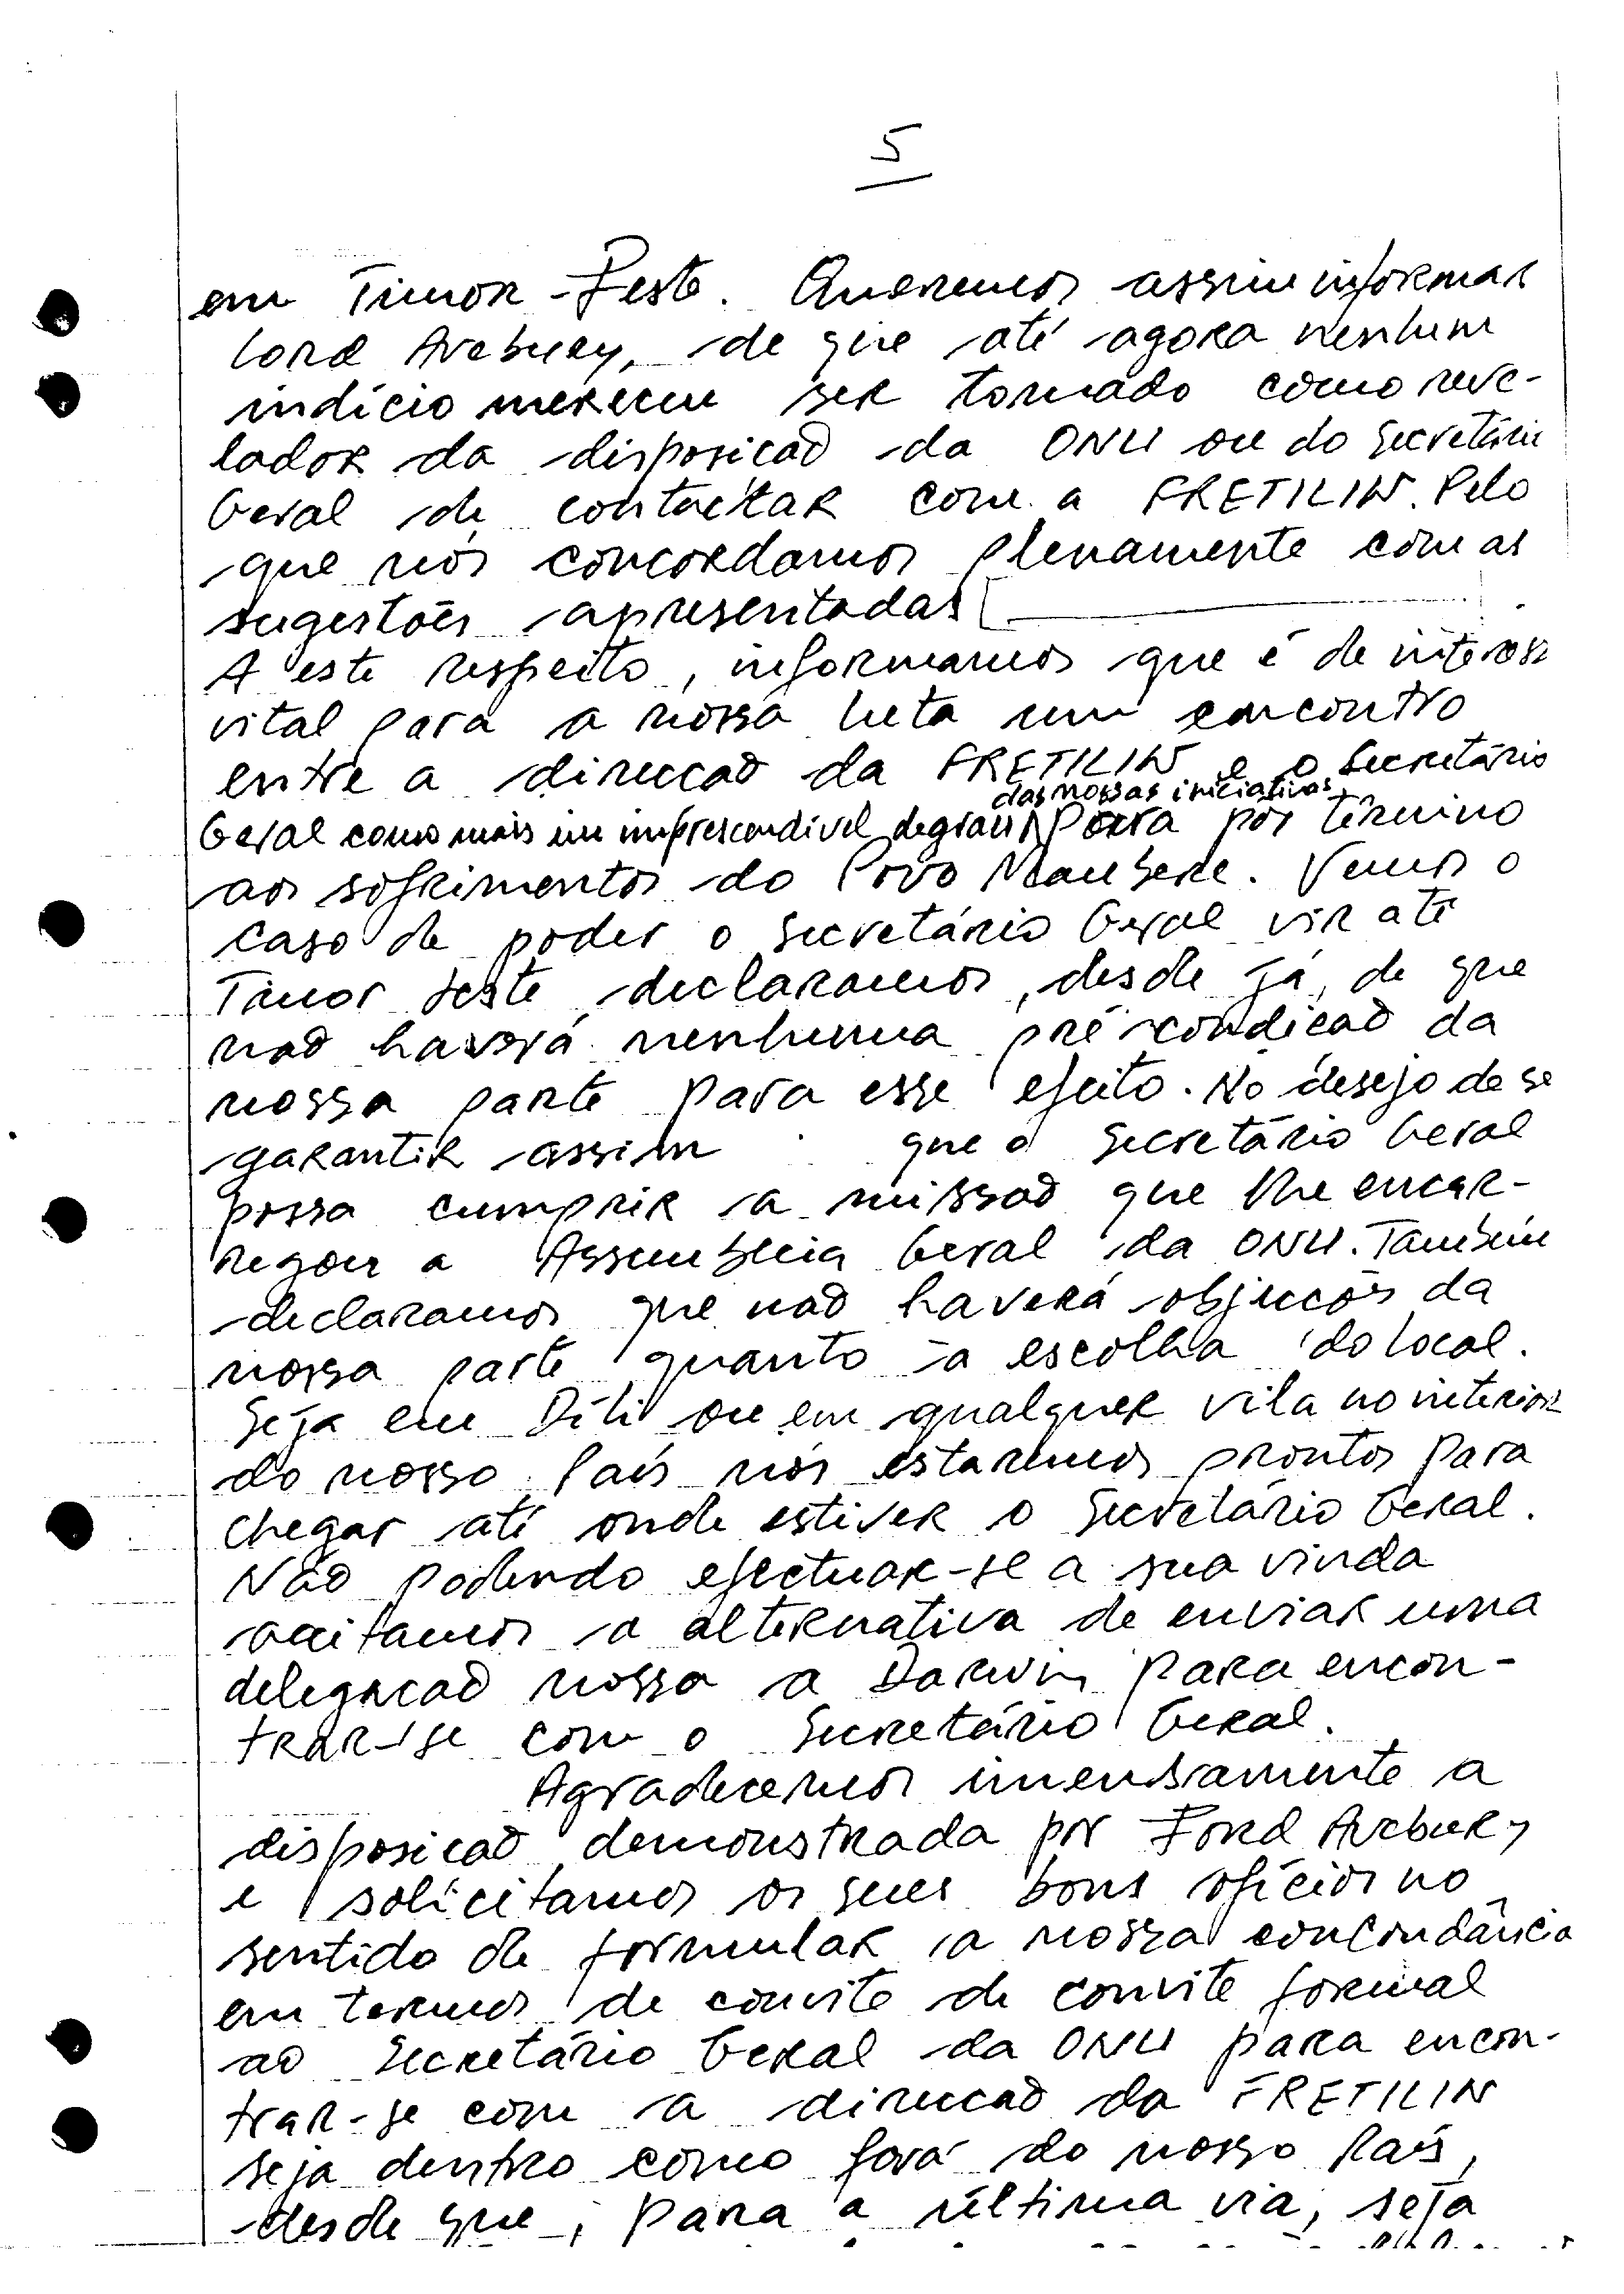 5
em Timor-Leste. Queremos assim informar
Lord Avebury, de que até agora nenhum
indício mereceu ser tomado como reve-
lador da disposicaõ da ONU ou do Secretário
Geral de contactar com a FRETILIN. Pelo
que nós concordamos plenamente com as
sugestões apresentadas
A este respeito, informamos que é de interesse
vital para a nossa luta um encontro
entre a direccaõ da FRETILIN e o Secretário
das nossas iniciativas
Geral como mais um imprescendível degrau para pôr término
aos sofrimentos do Povo Maubere. Vemos o
caso de poder o Secretário Geral vir até
Timor Leste, declaramos, desde já, de que
naõ haverá nenhuma pré-condicaõ da
nossa parte para esse efeito. No desejo de se
garantir assim que o Secretário Geral
possa cumprir a missaõ que lhe encar-
regou a Assembleia Geral da ONU. Também
declaramos que naõ haverá objecções da
nossa parte quanto à escolha do local.
Seja em Díli ou em qualquer vila no interior
do nosso País nós estaremos prontos para
chegar até onde estiver o Secretário Geral.
Não podendo efectuar-se a sua vinda
aceitamos a alternativa de enviar uma
delegacaõ nossa a Darwin para encon-
trar-se com o Secretário Geral.
Agradecemos imensamente a
disposicaõ demonstrada por Lord Avebury
e solicitamos os seus bons ofícios no
sentido de formular a nossa concordância
em termos de convite de convite formal
ao Secretário Geral da ONU para encon-
trar-se com a direccaõ da FRETILIN
seja dentro como fora do nosso País,
desde que, para a última via, seja